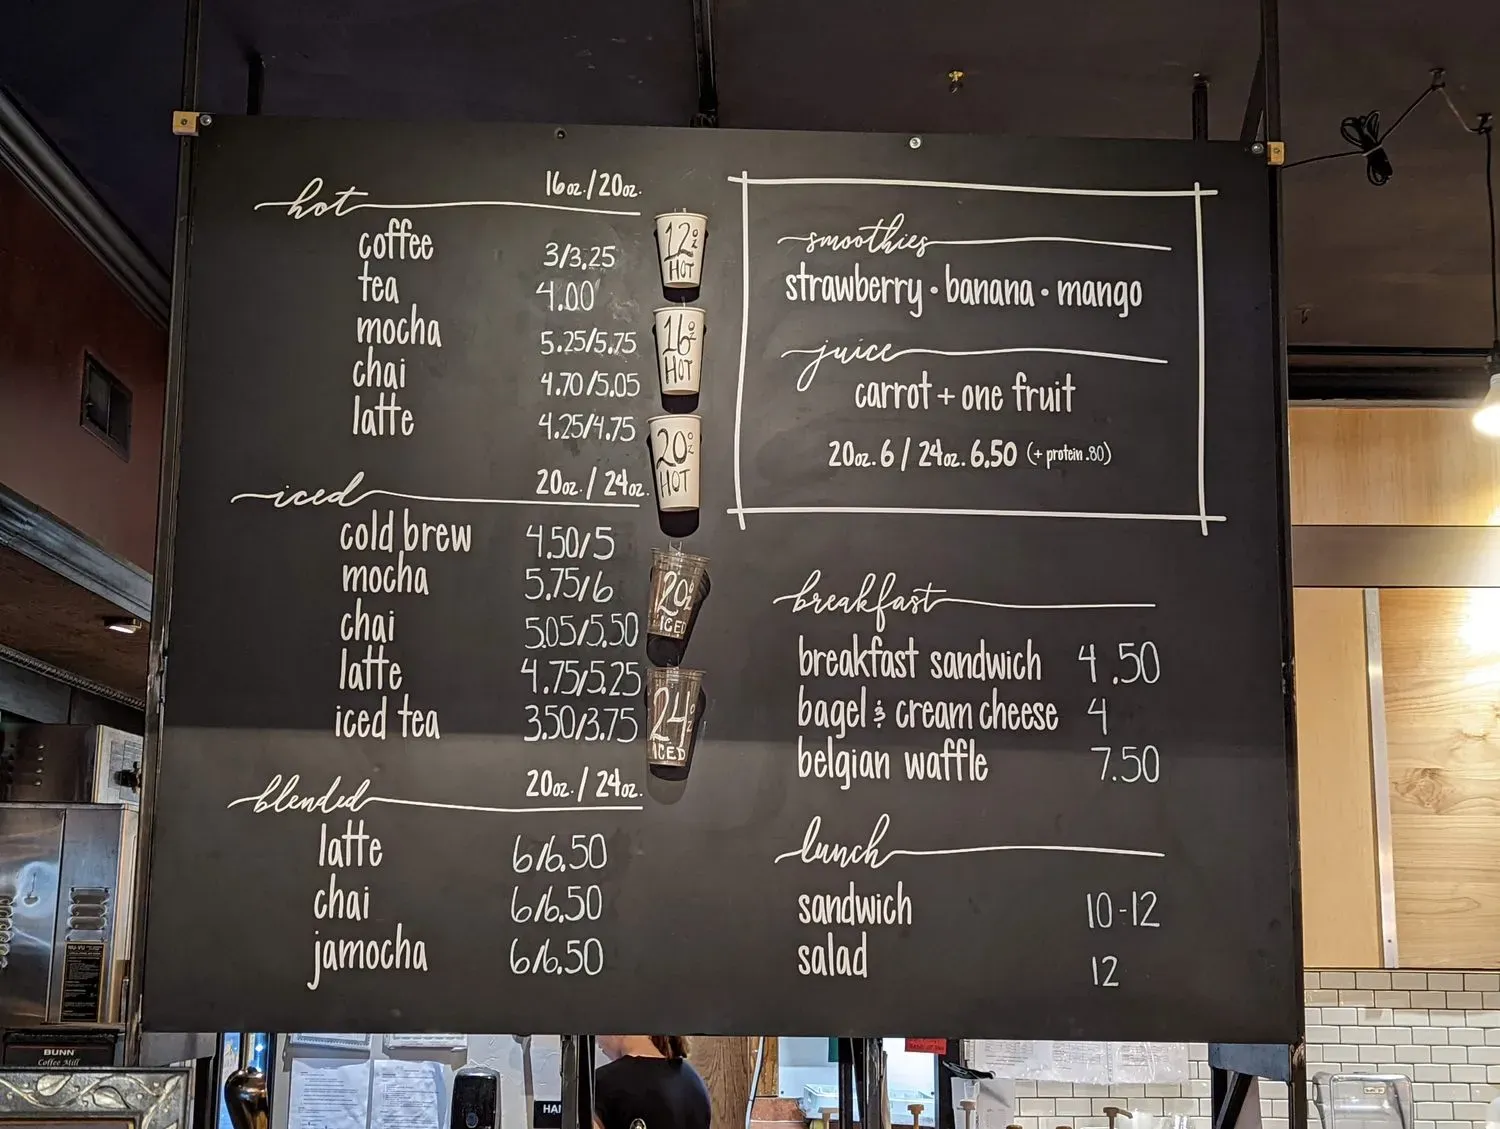 hot 16oz./20oz.
coffee 3/3.25
tea 4.00
mocha 5.25/5.75
chai 4.70/5.05
latte 4.25/4.75
iced 20oz./24oz.
cold brew 4.50/5
mocha 5.75/6
chai 5.05/5.50
latte 4.75/5.25
iced tea 3.50/3.75
blended 20oz./24oz.
latte 6/6.50
chai 6/6.50
jamocha 6/6.50
12oz
HOT
16oz
HOT
20oz
HOT
20oz
ICED
24oz
ICED
smoothies
strawberry • banana • mango
juice
carrot + one fruit
20oz. 6 / 24oz. 6.50 (+ protein .80)
breakfast
breakfast sandwich 4.50
bagel & cream cheese 4
belgian waffle 7.50
lunch
sandwich 10-12
salad 12
BUNN
Coffee Mill
HAN